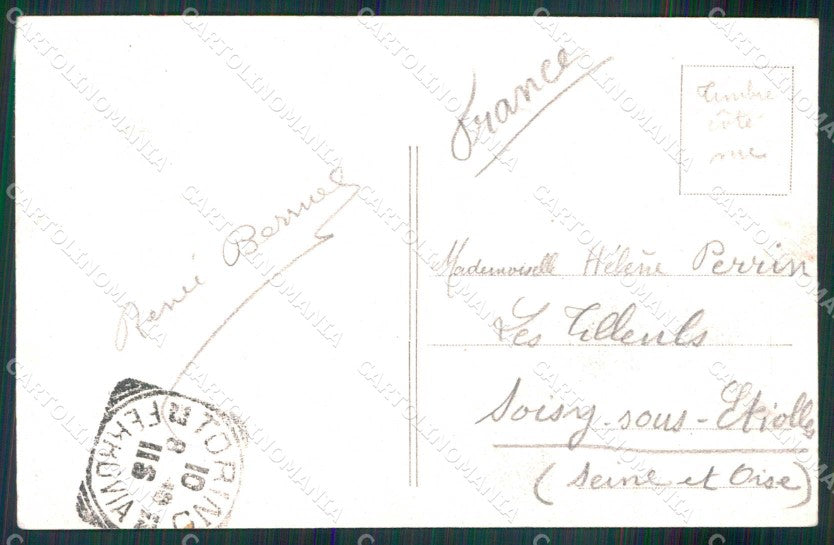 France
Timbre
côté
vue
René Berruel
Mademoiselle Hélène Perrin
Les Tilleuls
Soisy-sous-Etiolles
(Seine et Oise)
TORINO
FERROVIA
10
CARTOLINOMANIA